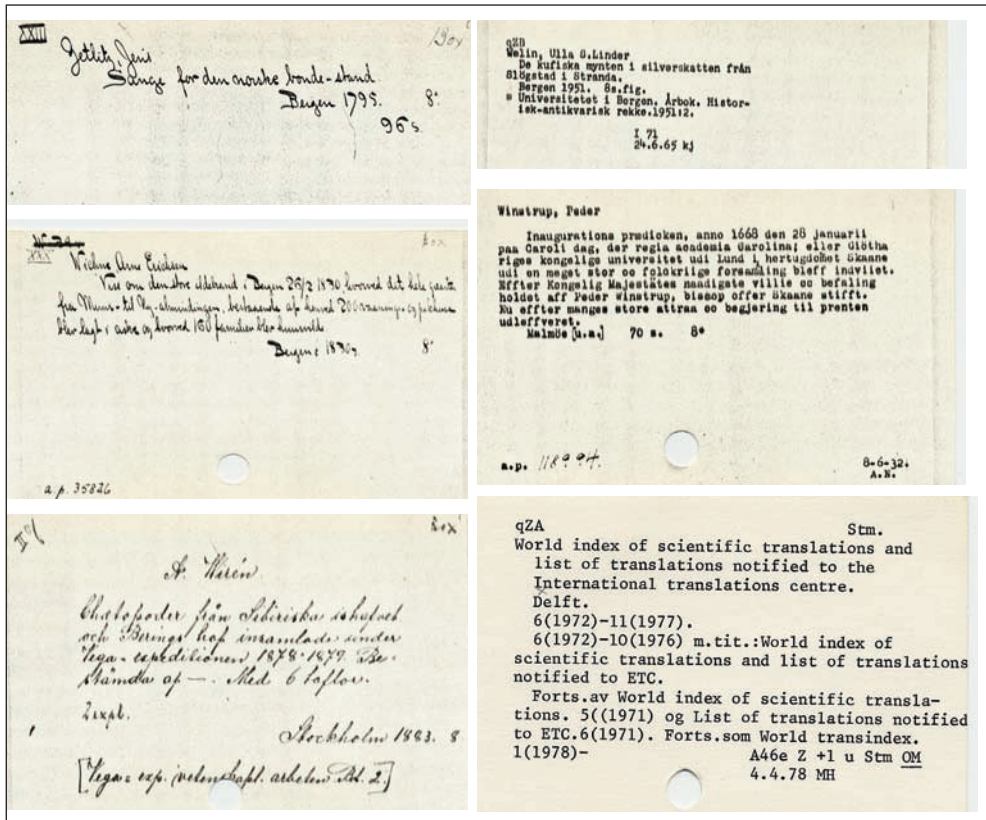 XXIII
Zetlitz, Jens
Sange for den norske bonde-stand.
Bergen 1795. 8°
96 s.
XXX
box
Wichne Arne Ericksen
Vise om den store ildebrand i Bergen 25/2 1830 hvorved det hele
fra Muren til Ny-almindingen, bestaaende af henved 200
blev lagt i aske og hvorved 150 familier blev huusvilde
Bergen 1830. 8°
a.p. 35826
box
A. Wirén
Chætopoder från Sibiriska ishafvet
och Berings haf insamlade under
Vega-expeditionen 1878-1879. Be-
stämda af —. Med 6 taflor.
2 expl.
Stockholm 1883. 8
[Vega-exp. vetenskapl. arbeten Bd. 2.]
qZB
Welin, Ulla S.Linder
De kufiska mynten i silverskatten från
Slögstad i Stranda.
Bergen 1951. 8s.fig.
= Universitetet i Bergen. Årbok. Histor-
isk-antikvarisk rekke.1951:2.
I 71
24.6.65 kj
Winstrup, Peder
Inaugurations prædicken, anno 1668 den 28 januarii
paa Caroli dag, der regia academia Carolina; eller Giötha
riges kongelige universitet udi Lund i hertugdomet Skaane
udi en meget stor oc folckriige forsamling bleff indviiet.
Effter Kongelig Majestätes naadigste villie oc befaling
holdet aff Peder Winstrup, biscop offer Skaane stifft.
Nu effter manges store attraa oc begjering til prenten
udleffveret.
Malmöe [u.a.] 70 s. 8°
a.p. 118994.
8-6-32.
A.N.
qZA Stm.
World index of scientific translations and
list of translations notified to the
International translations centre.
Delft.
6(1972)-11(1977).
6(1972)-10(1976) m.tit.:World index of
scientific translations and list of translations
notified to ETC.
Forts.av World index of scientific transla-
tions. 5((1971) og List of translations notified
to ETC.6(1971). Forts.som World transindex.
1(1978)- A46e Z +1 u Stm OM
4.4.78 MH